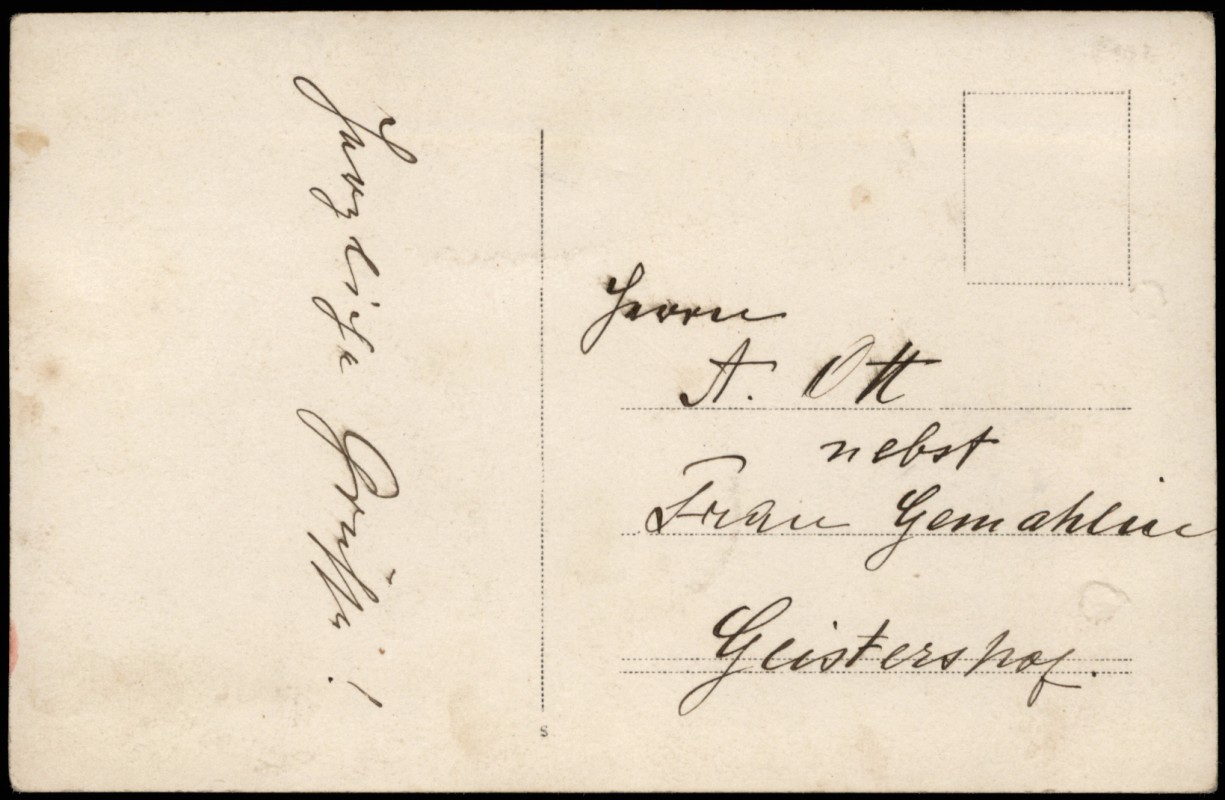 Herzliche Grüsse!
Herrn
A. Ott
nebst
Frau Gemahlin
Geistershof.
S